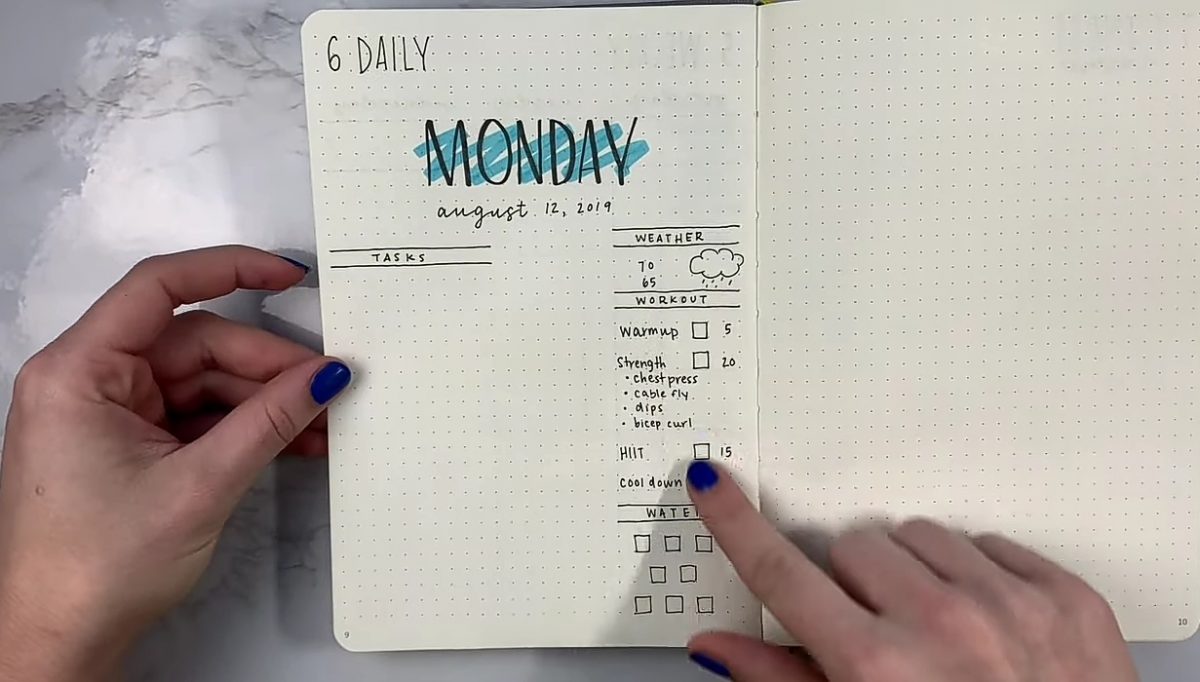 6 DAILY
MONDAY
august 12, 2019
TASKS
WEATHER
70
65
WORKOUT
Warmup 5
Strength 20
• chest press
• cable fly
• dips
• bicep curl
HIIT 15
Cool down
9
10